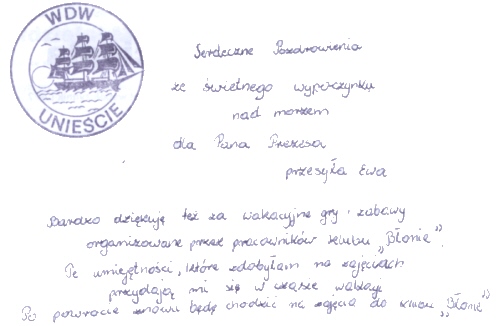 WDW
UNIEŚCIE
Serdeczne Pozdrowienia
ze świetnego wypoczynku
nad morzem
dla Pana Prezesa
przesyła Ewa
Bardzo dziękuję też za wakacyjne gry i zabawy
organizowane przez pracowników klubu „Błonie”.
Te umiejętności, które zdobyłam na zajęciach
przydają mi się w czasie wakacji
Po powrocie znowu będę chodzić na zajęcia do klubu „Błonie”